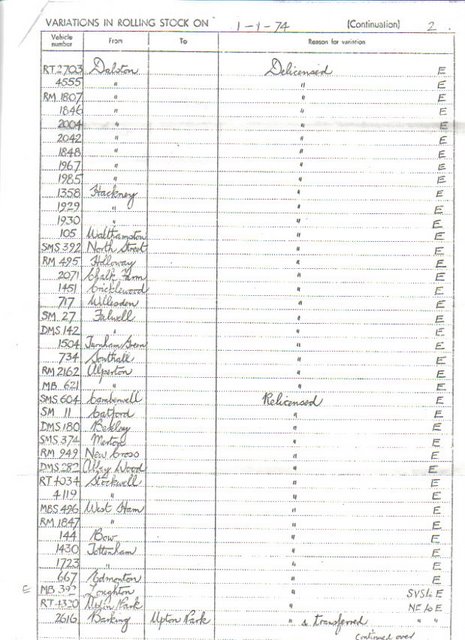 VARIATIONS IN ROLLING STOCK ON 1-1-74 (Continuation) 2
Vehicle number From To Reason for variation
RT 2703 Dalston Delicensed E
4555 " " E
RM 1807 " " E
1846 " " E
2004 " " E
2042 " " E
1848 " " E
1967 " " E
1985 " " E
1358 Hackney " E
1929 " " E
1930 " " E
105 Walthamston " E
SMS 392 North Street " E
RM 495 Holloway " E
2071 Chalk Farm " E
1451 Cricklewood " E
717 Willesden " E
SM 27 Fulwell " E
DMS 142 " " E
1504 Turnham Green " E
734 Southall " E
RM 2162 Alperton " E
MB 621 " " E
SMS 604 Camberwell Relicensed E
SM 11 Catford " E
DMS 180 Bexley " E
SMS 374 Merton " E
RM 949 New Cross " E
DMS 282 Abbey Wood " E
RT 4034 Stockwell " E
4119 " " E
MBS 496 West Ham " E
RM 1847 " " E
144 Bow " E
1430 Tottenham " E
1723 " " E
667 Edmonton " E
E MB 392 Loughton " SVS to E
RT 4320 Upton Park " NF to E
2616 Barking Upton Park " & transferred " "
Continued over